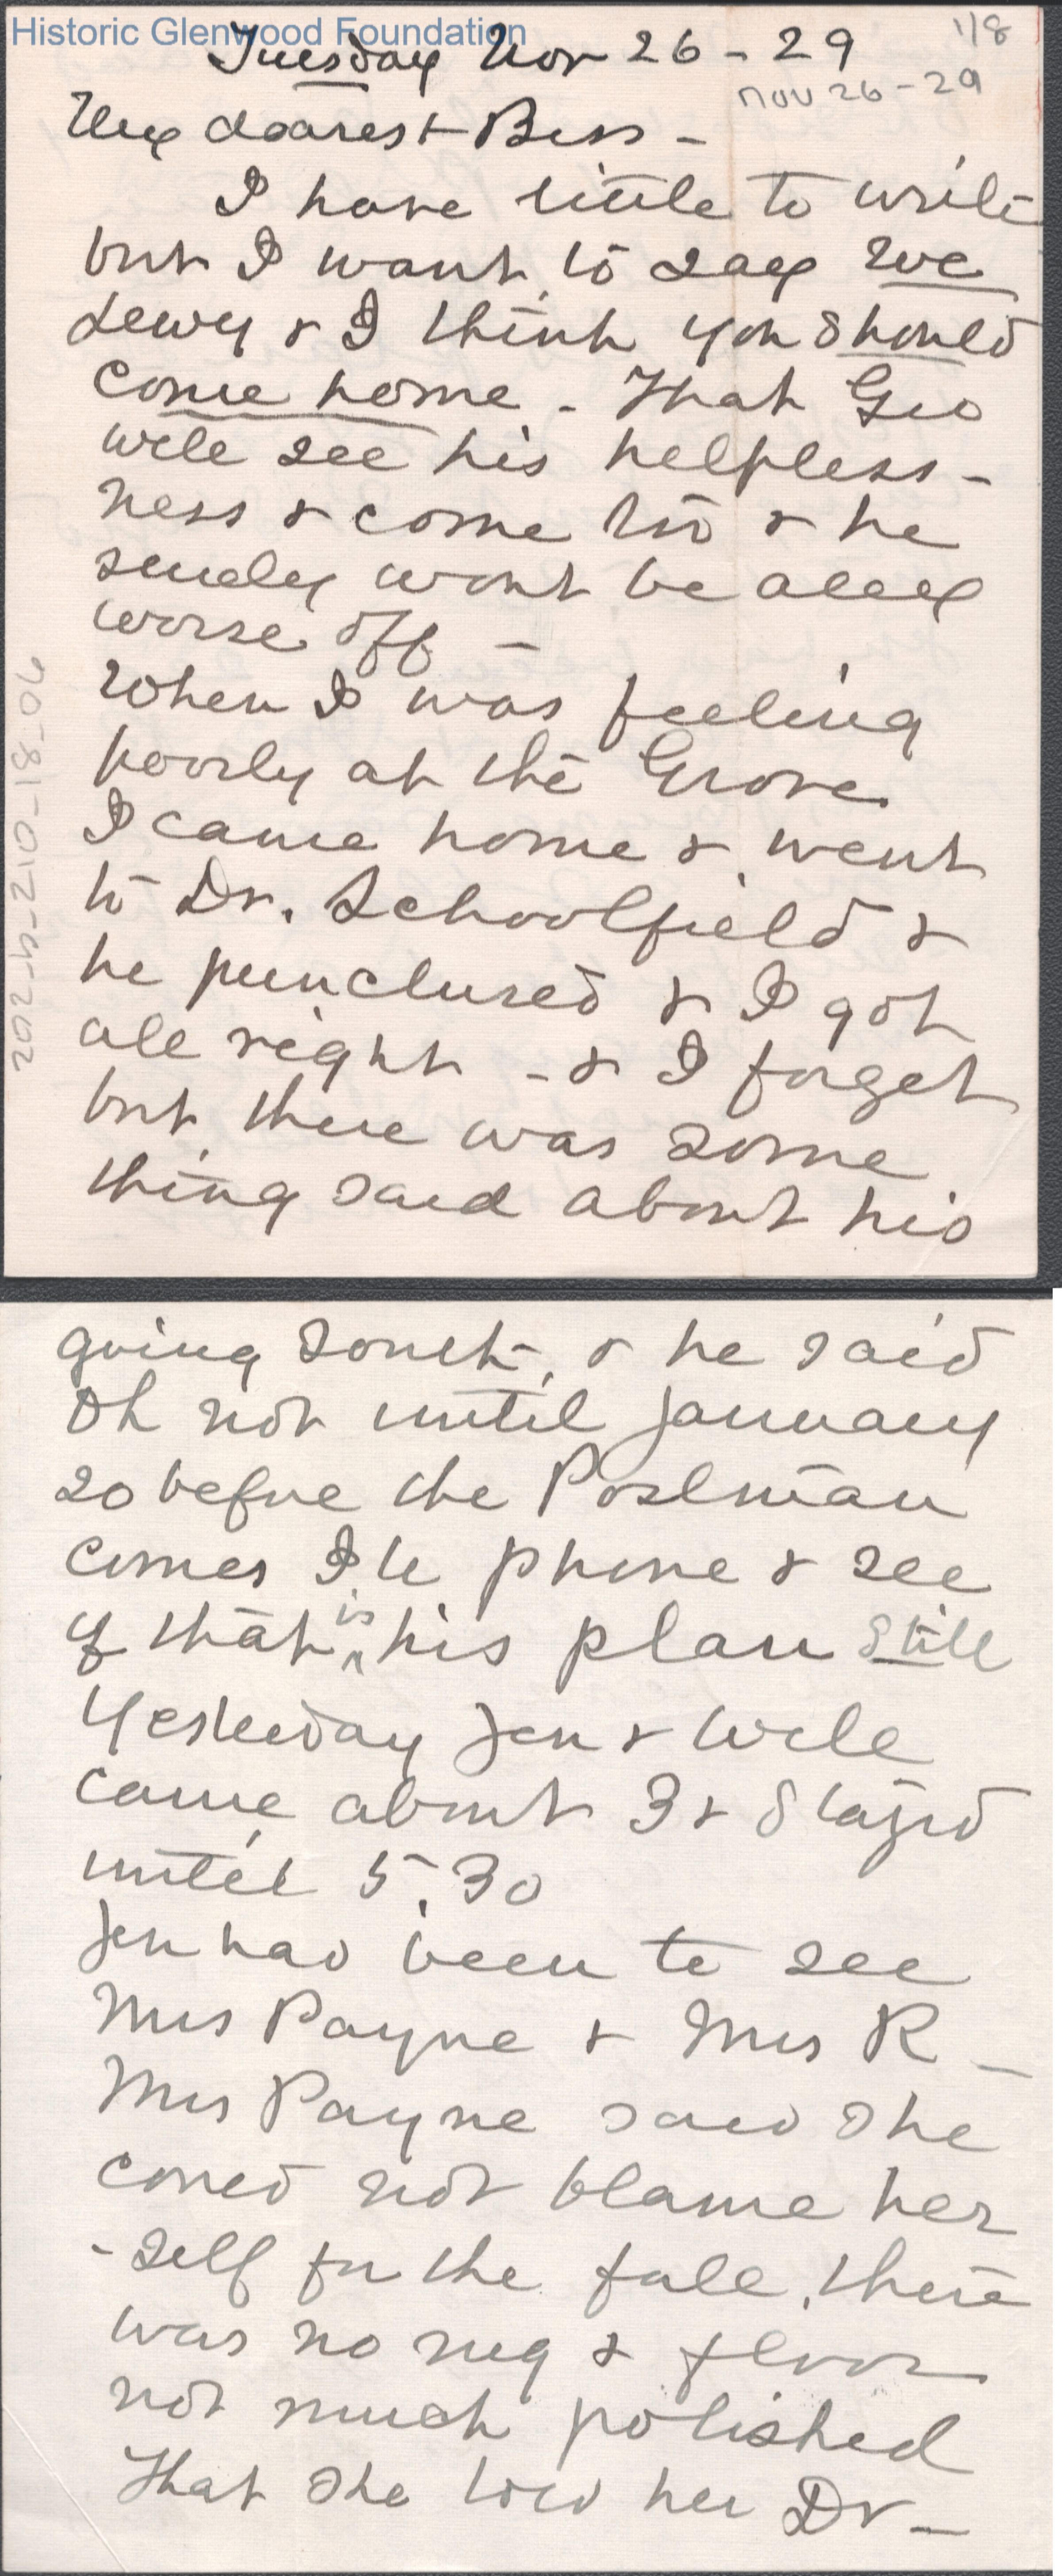 Historic Glenwood Foundation
118
Tuesday Nov 26 - 29
Nov 26 - 29
My dearest Bess -
I have little to write
but I want to say we
Lewy & I think you should
come home - That Geo
will see his helpless-
ness & come too & he
surely wont be any
worse off -
When I was feeling
poorly at the Grove
I came home & went
to Dr. Schoolfield &
he punctured & I got
all right - & I forget
but there was some
thing said about his
going South, & he said
Oh not until January
so before the Postman
comes I'le phone & see
if that is his plan still
Yesterday Jen & Will
came about 3 & stayed
until 5.30
Jen had been to see
Mrs Payne & Mrs R -
Mrs Payne said she
could not blame her
-self for the fall, there
was no rug & floor
not much polished
That she told her Dr -
2021-4-210-1810-06